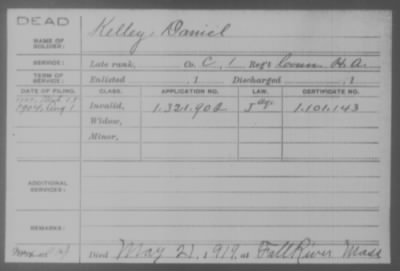 DEAD
NAME OF SOLDIER: Kelley, Daniel
SERVICE: Late rank, Co. C, 1 Reg't Conn H.A.
TERM OF SERVICE: Enlisted , 1 Discharged , 1
DATE OF FILING. CLASS. APPLICATION NO. LAW. CERTIFICATE NO.
1904, Aug 1 Invalid, 1.321.902 1.101.143
Widow,
Minor,
ADDITIONAL SERVICES:
REMARKS:
Died May 21, 1919, at Fall River Mass